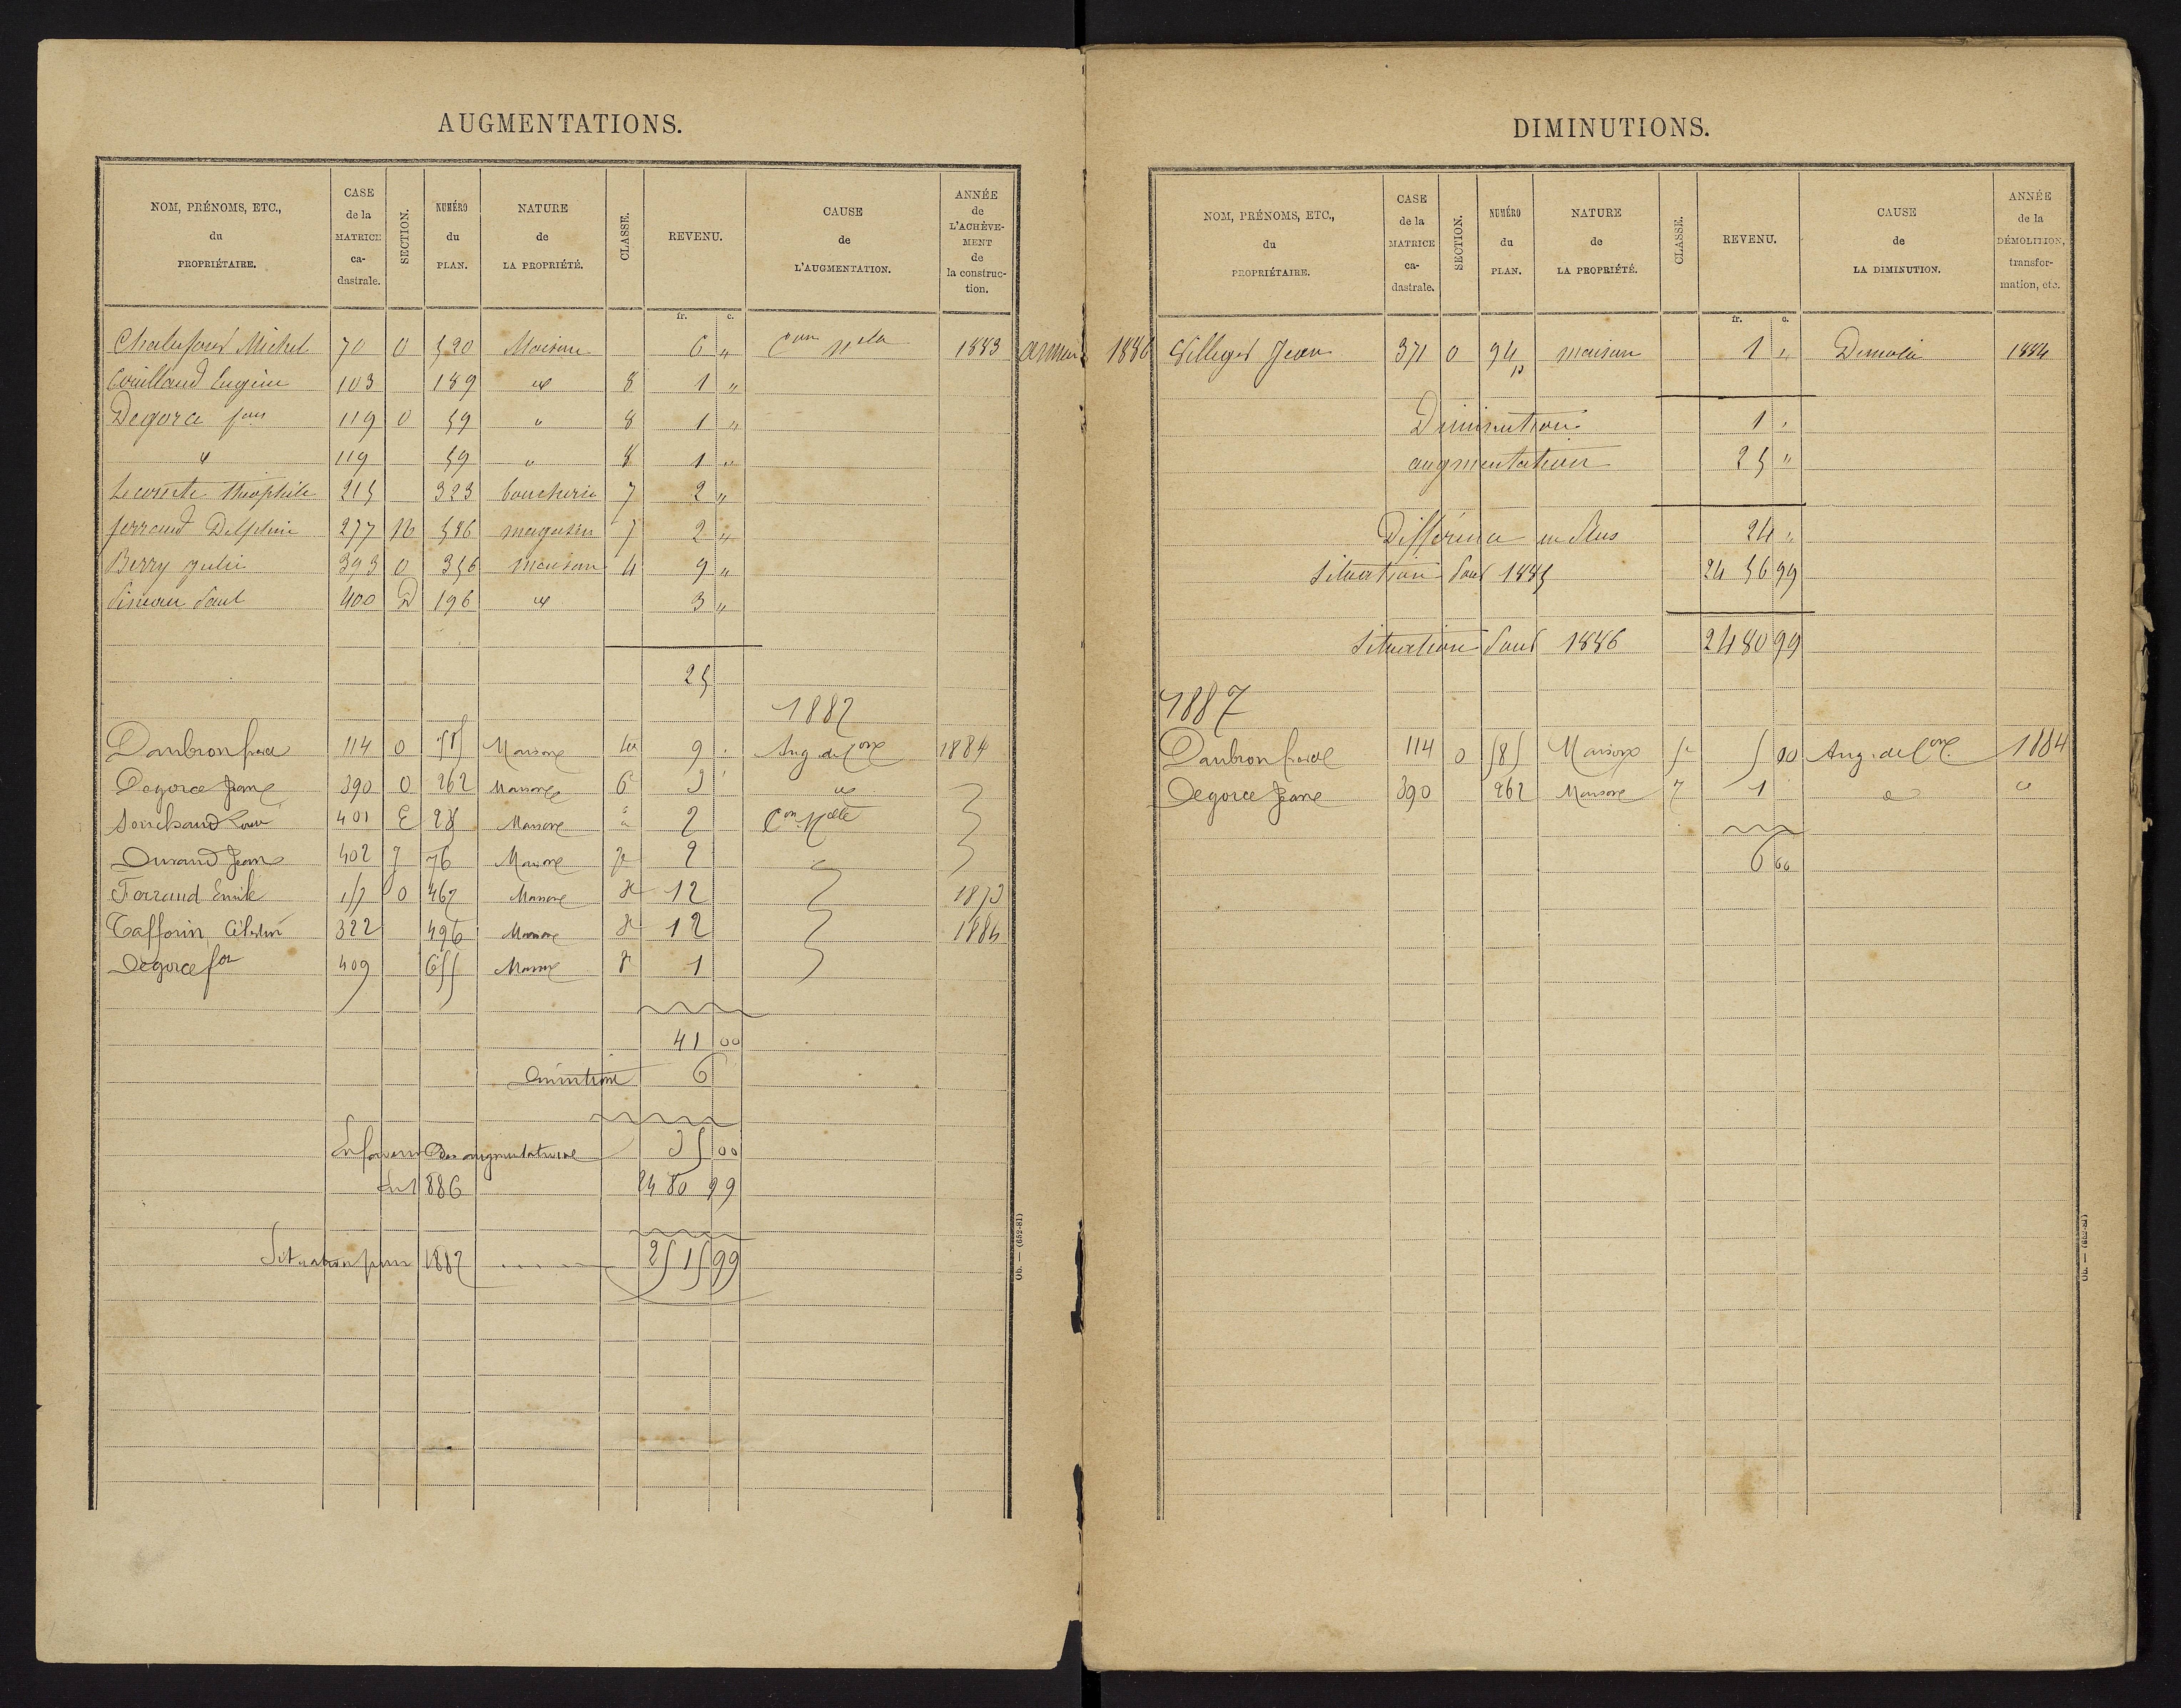 AUGMENTATIONS.
NOM, PRÉNOMS, ETC., du PROPRIÉTAIRE. CASE de la MATRICE ca-dastrale. SECTION. NUMÉRO du PLAN. NATURE de LA PROPRIÉTÉ. CLASSE. REVENU. CAUSE de L'AUGMENTATION. ANNÉE de L'ACHÈVE-MENT de la construc-tion.
fr. c.
Michel 70 O 520 Maison 6 " Con Nlle 1883
Eugène 103 189 " 8 1 "
Degorce 119 O 59 " 8 1 "
" 119 59 " 8 1 "
Lecomte Théophile 215 323 boucherie 7 2 "
ferraud Delphin 277 N 586 magasin 7 2 "
Berry julie 393 O 356 maison 4 9 "
Simeau Paul 400 D 196 " 3 "
25
1887
Daubron 114 O 585 Maison 4e 9 Aug. de Con 1884
Degorce Jeanne 390 O 262 Maison 6 3 "
401 E 28 Maison " 2 Con Nelle
Durand Jean 402 J 76 Maison 7e 2
Ferraud Emile 157 O 467 Maison 3e 12 1873
Cafforin Célestin 322 496 Maison 3e 12 1884
Degorce 409 655 Maison 8 1
41 00
Diminution 6
En faveur des augmentations 35 00
En 1886 2480 99
Situation pour 1887 .... 2515 99
Ob. — (652-81)
DIMINUTIONS.
NOM, PRÉNOMS, ETC., du PROPRIÉTAIRE. CASE de la MATRICE ca-dastrale. SECTION. NUMÉRO du PLAN. NATURE de LA PROPRIÉTÉ. CLASSE. REVENU. CAUSE de LA DIMINUTION. ANNÉE de la DÉMOLITION, transfor-mation, etc.
fr. c.
année 1886 Villeger Jean 371 O 94 maison 1 " Demoli 1884
Diminution 1 "
augmentation 25 "
Différence en Plus 24 "
Situation Pour 1885 2456 99
Situation Pour 1886 2480 99
1887
Daubron 114 O 585 Maison 5e 5 00 Aug. de Con 1884
Degorce Jeanne 390 262 Maison 7 1 " "
6 00
Ob. — (652-81)